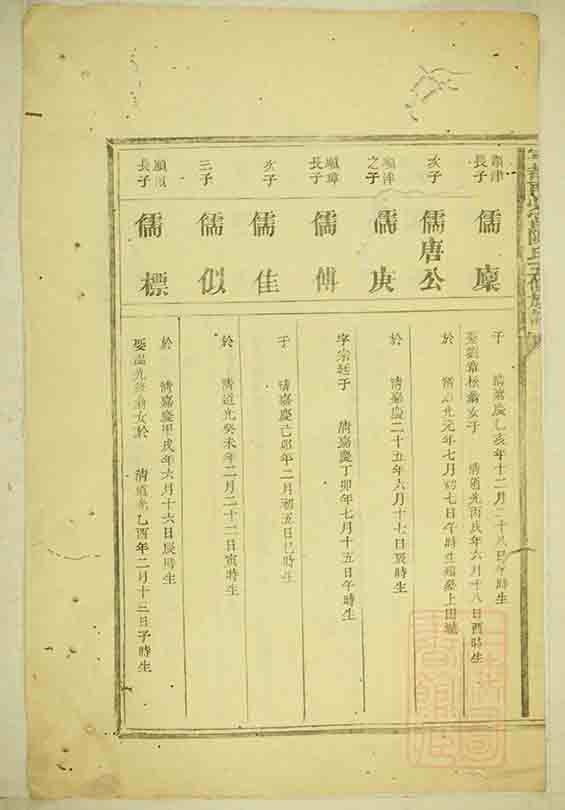 顯津
長子
儒廩
于 清嘉慶乙亥年十二月二十八日午時生
娶劉章松翁女于 清道光丙戌年六月十八日酉時生
次子
儒唐公
於 清道光元年七月初七日午時生 上田
顯津
之子
儒庚
於 清嘉慶二十五年六月十七日辰時生
顯璋
長子
儒傅
字宗廷于 清嘉慶丁卯年七月十五日午時生
次子
儒佳
于 清嘉慶己卯年二月初五日巳時生
三子
儒似
於 清道光癸未年二月二十二日寅時生
顯
長子
儒標
於 清嘉慶甲戌年六月十六日辰時生
娶温光 翁女於 清道光乙酉年二月十三日子時生
陳氏五修族譜